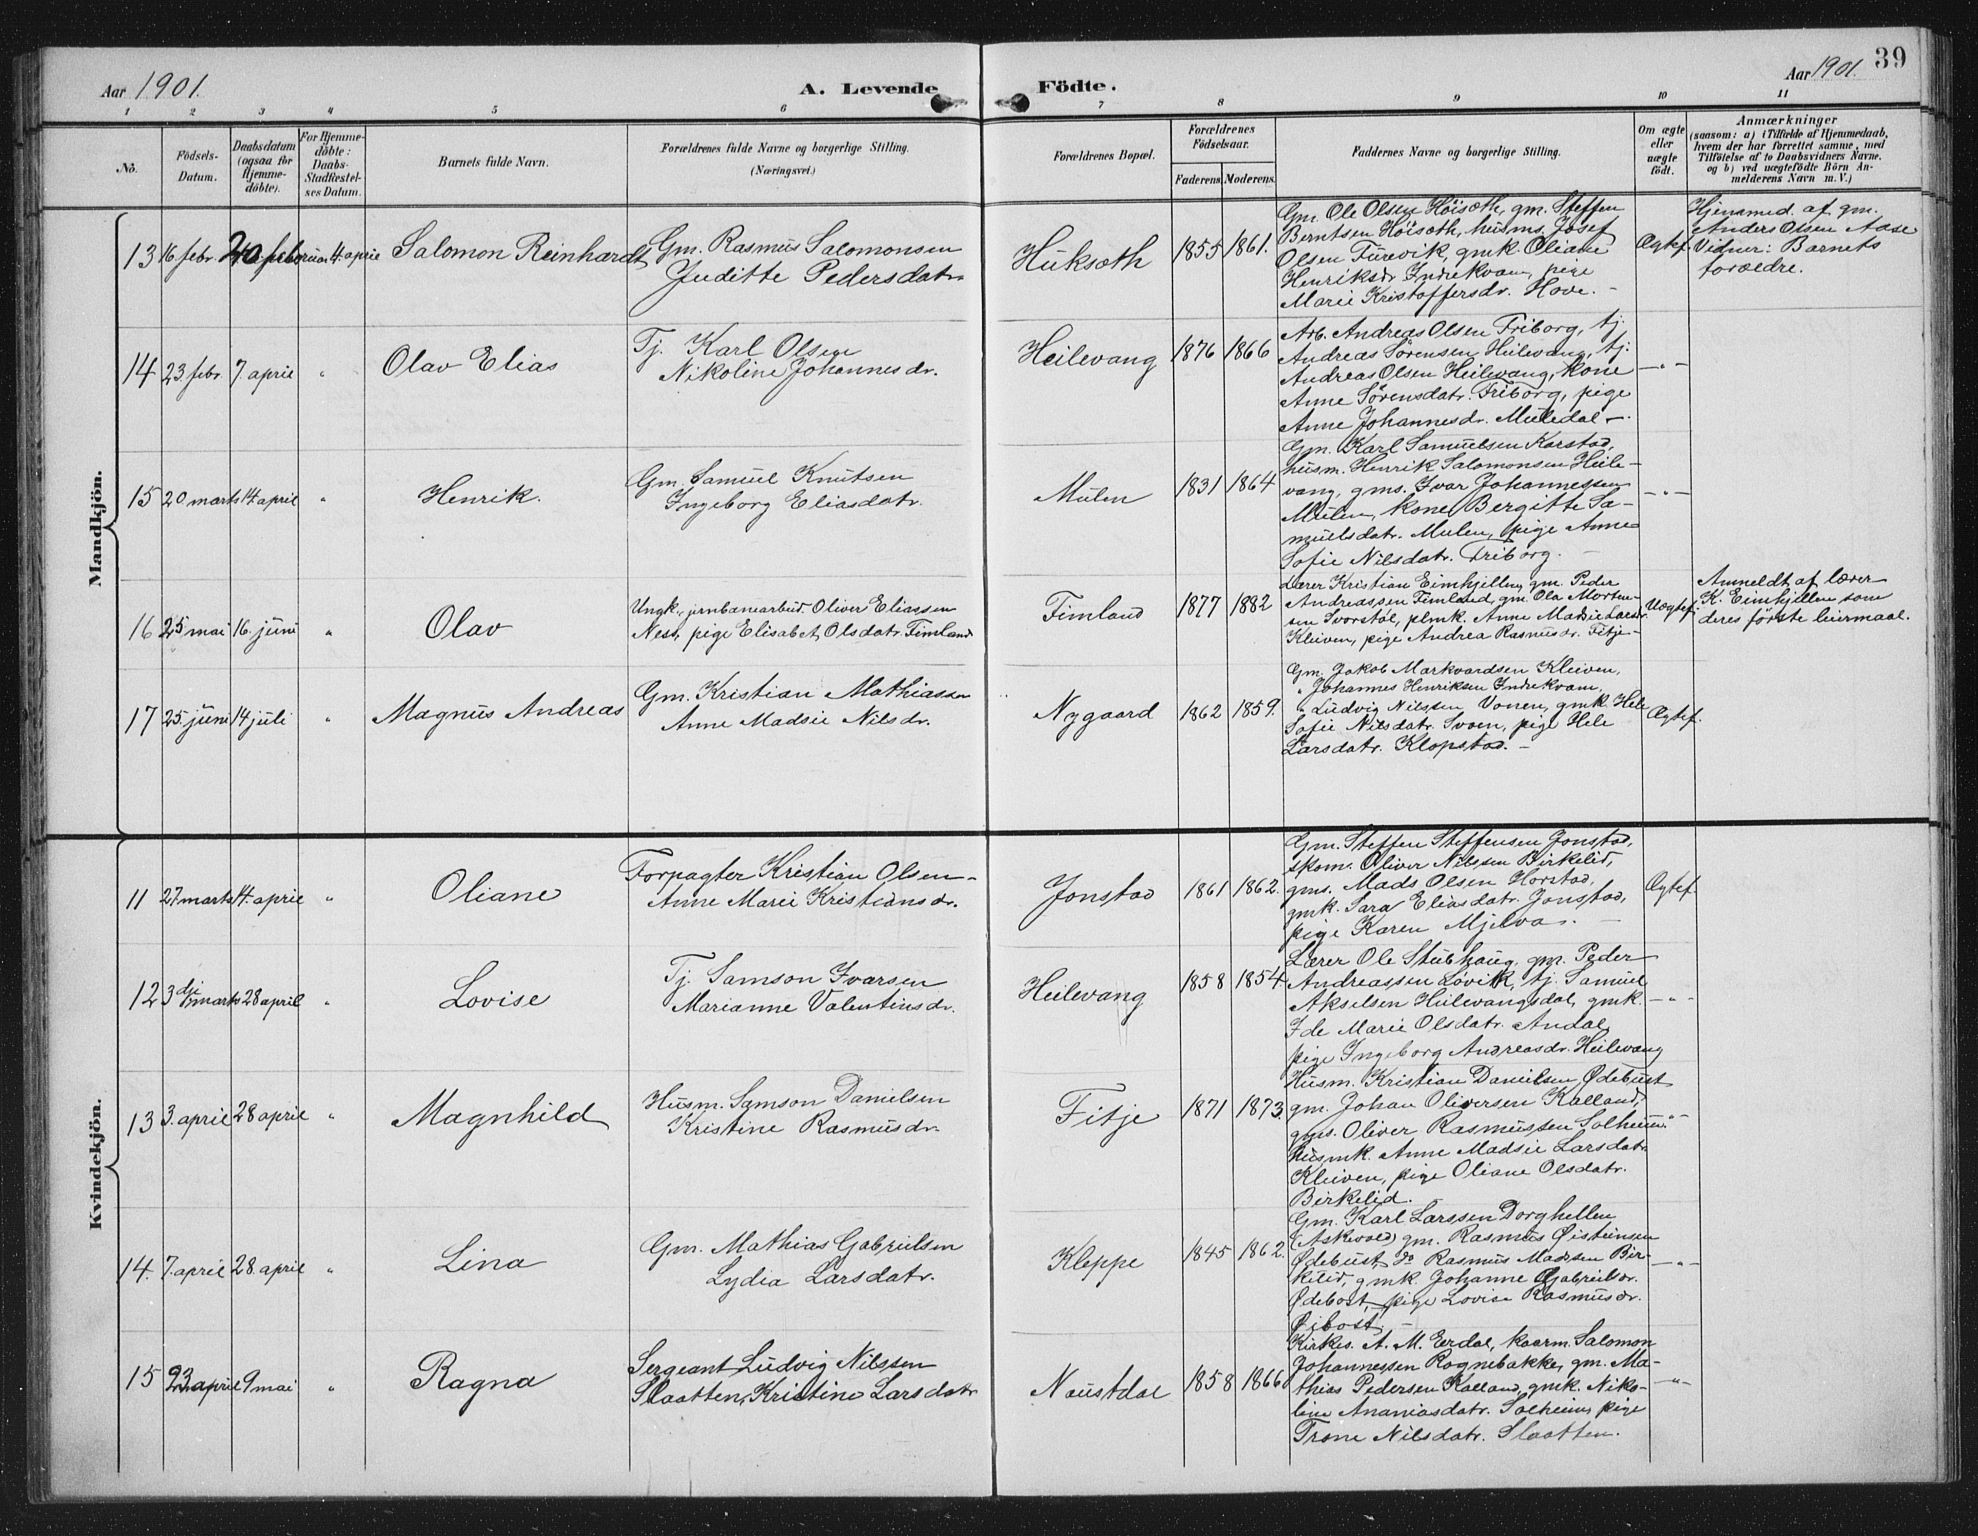 Aar 1901.
A. Levende
Födte.
Aar 1901.
39
1 2 3 4 5 6 7 8 9 10 11
No.
Födsels-
Datum.
Daabsdatum
(ogsaa for
Hjemme-
döbte).
For Hjemme-
döbte:
Daabs-
Stadfæstel-
ses Datum.
Barnets fulde Navn.
Forældrenes fulde Navne og borgerlige Stilling.
(Næringsvei.)
Forældrenes Bopæl.
Forældrenes
Födselsaar.
Faderens. Moderens.
Faddernes Navne og borgerlige Stilling.
Om ægte
eller
uægte
födt.
Anmærkninger
(saasom: a) i Tilfælde af Hjemmedaab,
hvem der har forrettet samme, med
Tilföielse af to Daabsvidners Navne,
og b) ved uægtefödte Börn An-
melderens Navn m. V.)
Mandkjön.
13 16 febr. 20 februar 4. april Salomon Reinhardt
Gm. Rasmus Salomonsen
Juditte Pedersdatr.
Huksæth 1855 1861.
Gm. Ole Olsen Höisæth, gm. Steffen
Berntsen Höisæth, husms. Josef
Olsen Furevik, gmk. Oliane
Henriksdr. Indrekvam, pige
Marie Kristoffersdr. Hove. -
Ægtef.
Hjemmed. af gm.
Anders Olsen Aase
Vidner: Barnets
forældre.
14 23 febr. 7 april " Olav Elias
Tj. Karl Olsen
Nikoline Johannesdr.
Heilevang 1876 1866
Arb. Andreas Olsen Friborg, tj.
Andreas Sörensen Heilevang, tj.
Andreas Olsen Heilevang, kone
Anne Sörensdatr. Friborg, pige
Anne Johannesdr. Muledal -.
- " -
15 20 marts 14 april " Henrik.
Gm. Samuel Knutsen
Ingeborg Eliasdatr.
Mulen 1831 1864
Gm. Karl Samuelsen Karstad,
husm. Henrik Salomonsen Heile-
vang, gms. Ivar Johannessen
Mulen, kone Bergitte Sa-
muelsdatr. Mulen, pige Anne
Sofie Nilsdatr. Friborg. -
- " -
16 25 mai 16. juni " Olav
Ungk., jernbanearbeid. Oliver Eliassen
Ness, pige Elisabet Olsdatr. Timland
Timland 1877 1882
Lærer Kristian Eimhjellen, gm. Peder
Andreassen Timland, gm. Ola Morten-
sen Svorstöl, plmk. Anne Madsie Larsdr.
Kleiven, pige Andrea Rasmusdr. Fitje -
Uægtef.
Anmeldt af lærer
K. Eimhjellen som
deres förste leiermaal.
17 25 juni 14 juli " Magnus Andreas
Gm. Kristian Mathiassen
Anne Madsie Nilsdr.
Nygaard 1862 1859.
Gm. Jakob Markvardsen Kleiven,
" Johannes Henriksen Indrekvam,
" Ludvig Nilssen Vonen, gmk. Hele
Sofie Nilsdatr. Svoen, pige Hele
Larsdatr. Klopstad. -
Ægtef.
Kvindekjön.
11 27 marts 14. april " Oliane
Forpagter Kristian Olsen -
Anne Marie Kristiansdr.
Jonstad 1861 1862.
Gm. Steffen Steffensen Jonstad,
skom. Oliver Nilssen Birkelid,
gms. Mads Olsen Horstad,
gmk. Sara Eliasdatr. Jonstad,
pige Karen Mjelva. -
Ægtef.
12 3die marts 28 april " Lovise
Tj. Samson Ivarsen
Marianne Valentinsdr.
Heilevang 1858 1854
Lærer Ole Stubhaug, gm. Peder
Andreassen Lövik, tj. Samuel
Akselsen Heilevangsdal, gmk.
Ide Marie Olsdatr. Andal,
pige Ingeborg Andreasdr. Heilevang
- " -
13 3. april 28 april " Magnhild
Husm. Samson Danielsen
Kristine Rasmusdr.
Fitje 1871 1873
Husm. Kristian Danielsen Ødebust
gm. Johan Oliversen Kalland,
gms. Oliver Rasmussen Solheim,
husmk. Anne Madsie Larsdatr.
Kleiven, pige Oliane Olsdatr.
Birkelid.
- " -
14. 7. april 28. april " Lina
Gm. Mathias Gabrielsen
Lydia Larsdatr.
Kleppe 1845 1862.
Gm. Karl Larssen Dorghellen
(Askvold) gm. Rasmus Øisteinsen
Ødebust, do Rasmus Madsen Bir-
kelid, gmk. Johanne Gabrielsdr.
Ødebost, pige Lovise Rasmusdr.
Øibost. -
- " -
15 23 april 9 mai " Ragna
Sergeant Ludvig Nilssen
Slaatten, Kristine Larsdatr
Naustdal 1858 1866
Kirkes. A. M. Erdal, kaarm. Salomon
Johannessen Rognebakke, gm. Ma-
thias Pedersen Kalland, gmk. Niko-
line Ananiasdatr. Solheim, pige
Trone Nilsdatr. Slaatten.
- " -